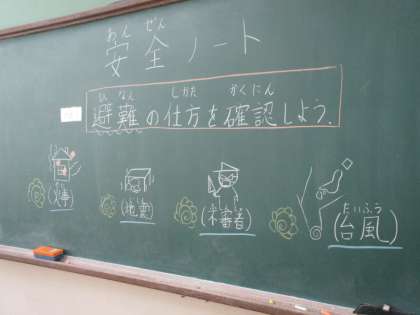 あん ぜん
安全ノート
ひ なん し かた かくにん
避難の仕方を確認しよう.
(火事) (地震) (不審者) (台風)
たいふう